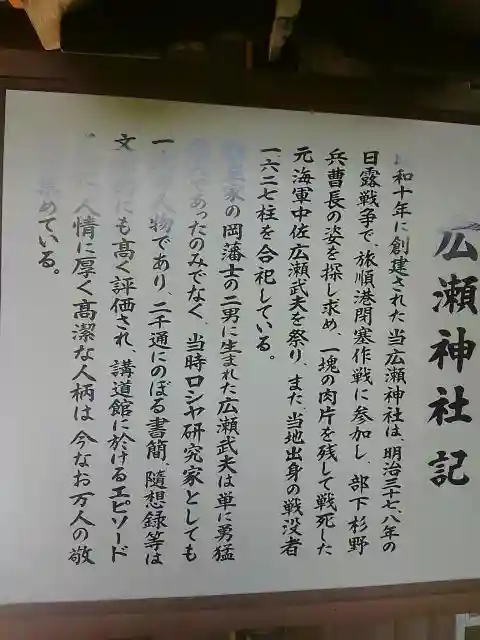 広瀬神社記
和十年に創建された当広瀬神社は、明治三十七、八年の
日露戦争で、旅順港閉塞作戦に参加し、部下杉野
兵曹長の姿を探し求め、一塊の肉片を残して戦死した
元海軍中佐広瀬武夫を祭り、また、当地出身の戦没者
一、六二七柱を合祀している。
家の岡藩士の二男に生まれた広瀬武夫は単に勇猛
であったのみでなく、当時ロシヤ研究家としても
一 人物であり、二千通にのぼる書簡、随想録等は
文 にも高く評価され、講道館に於けるエピソード
人情に厚く高潔な人柄は今なお万人の敬
集めている。